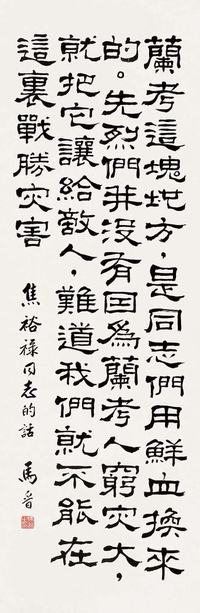 蘭考這塊地方，是同志們用鮮血換来
的。先烈們并没有因爲蘭考人窮灾大，
就把它讓給敵人，難道我們就不能在
這裏戰勝灾害
焦裕禄同志的話
馬晋